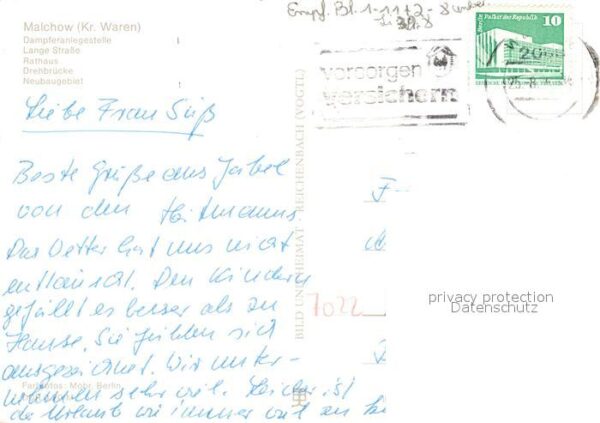 Malchow (Kr. Waren)
Dampferanlegestelle
Lange Straße
Rathaus
Drehbrücke
Neubaugebiet
Liebe Frau Süß
Beste Grüße aus Jabel
von den
Das Wetter hat uns nicht
enttäuscht. Den Kindern
gefällt es besser als zu
Hause. Sie fühlen sich
ausgezeichnet. Wir unter-
nehmen sehr viel. Leider ist
der Urlaub wie immer viel zu
Farbfotos: Mohr, Berlin
BILD UND HEIMAT REICHENBACH (VOGTL)
vorsorgen
versichern
Palast der Republik
10
7022
privacy protection
Datenschutz